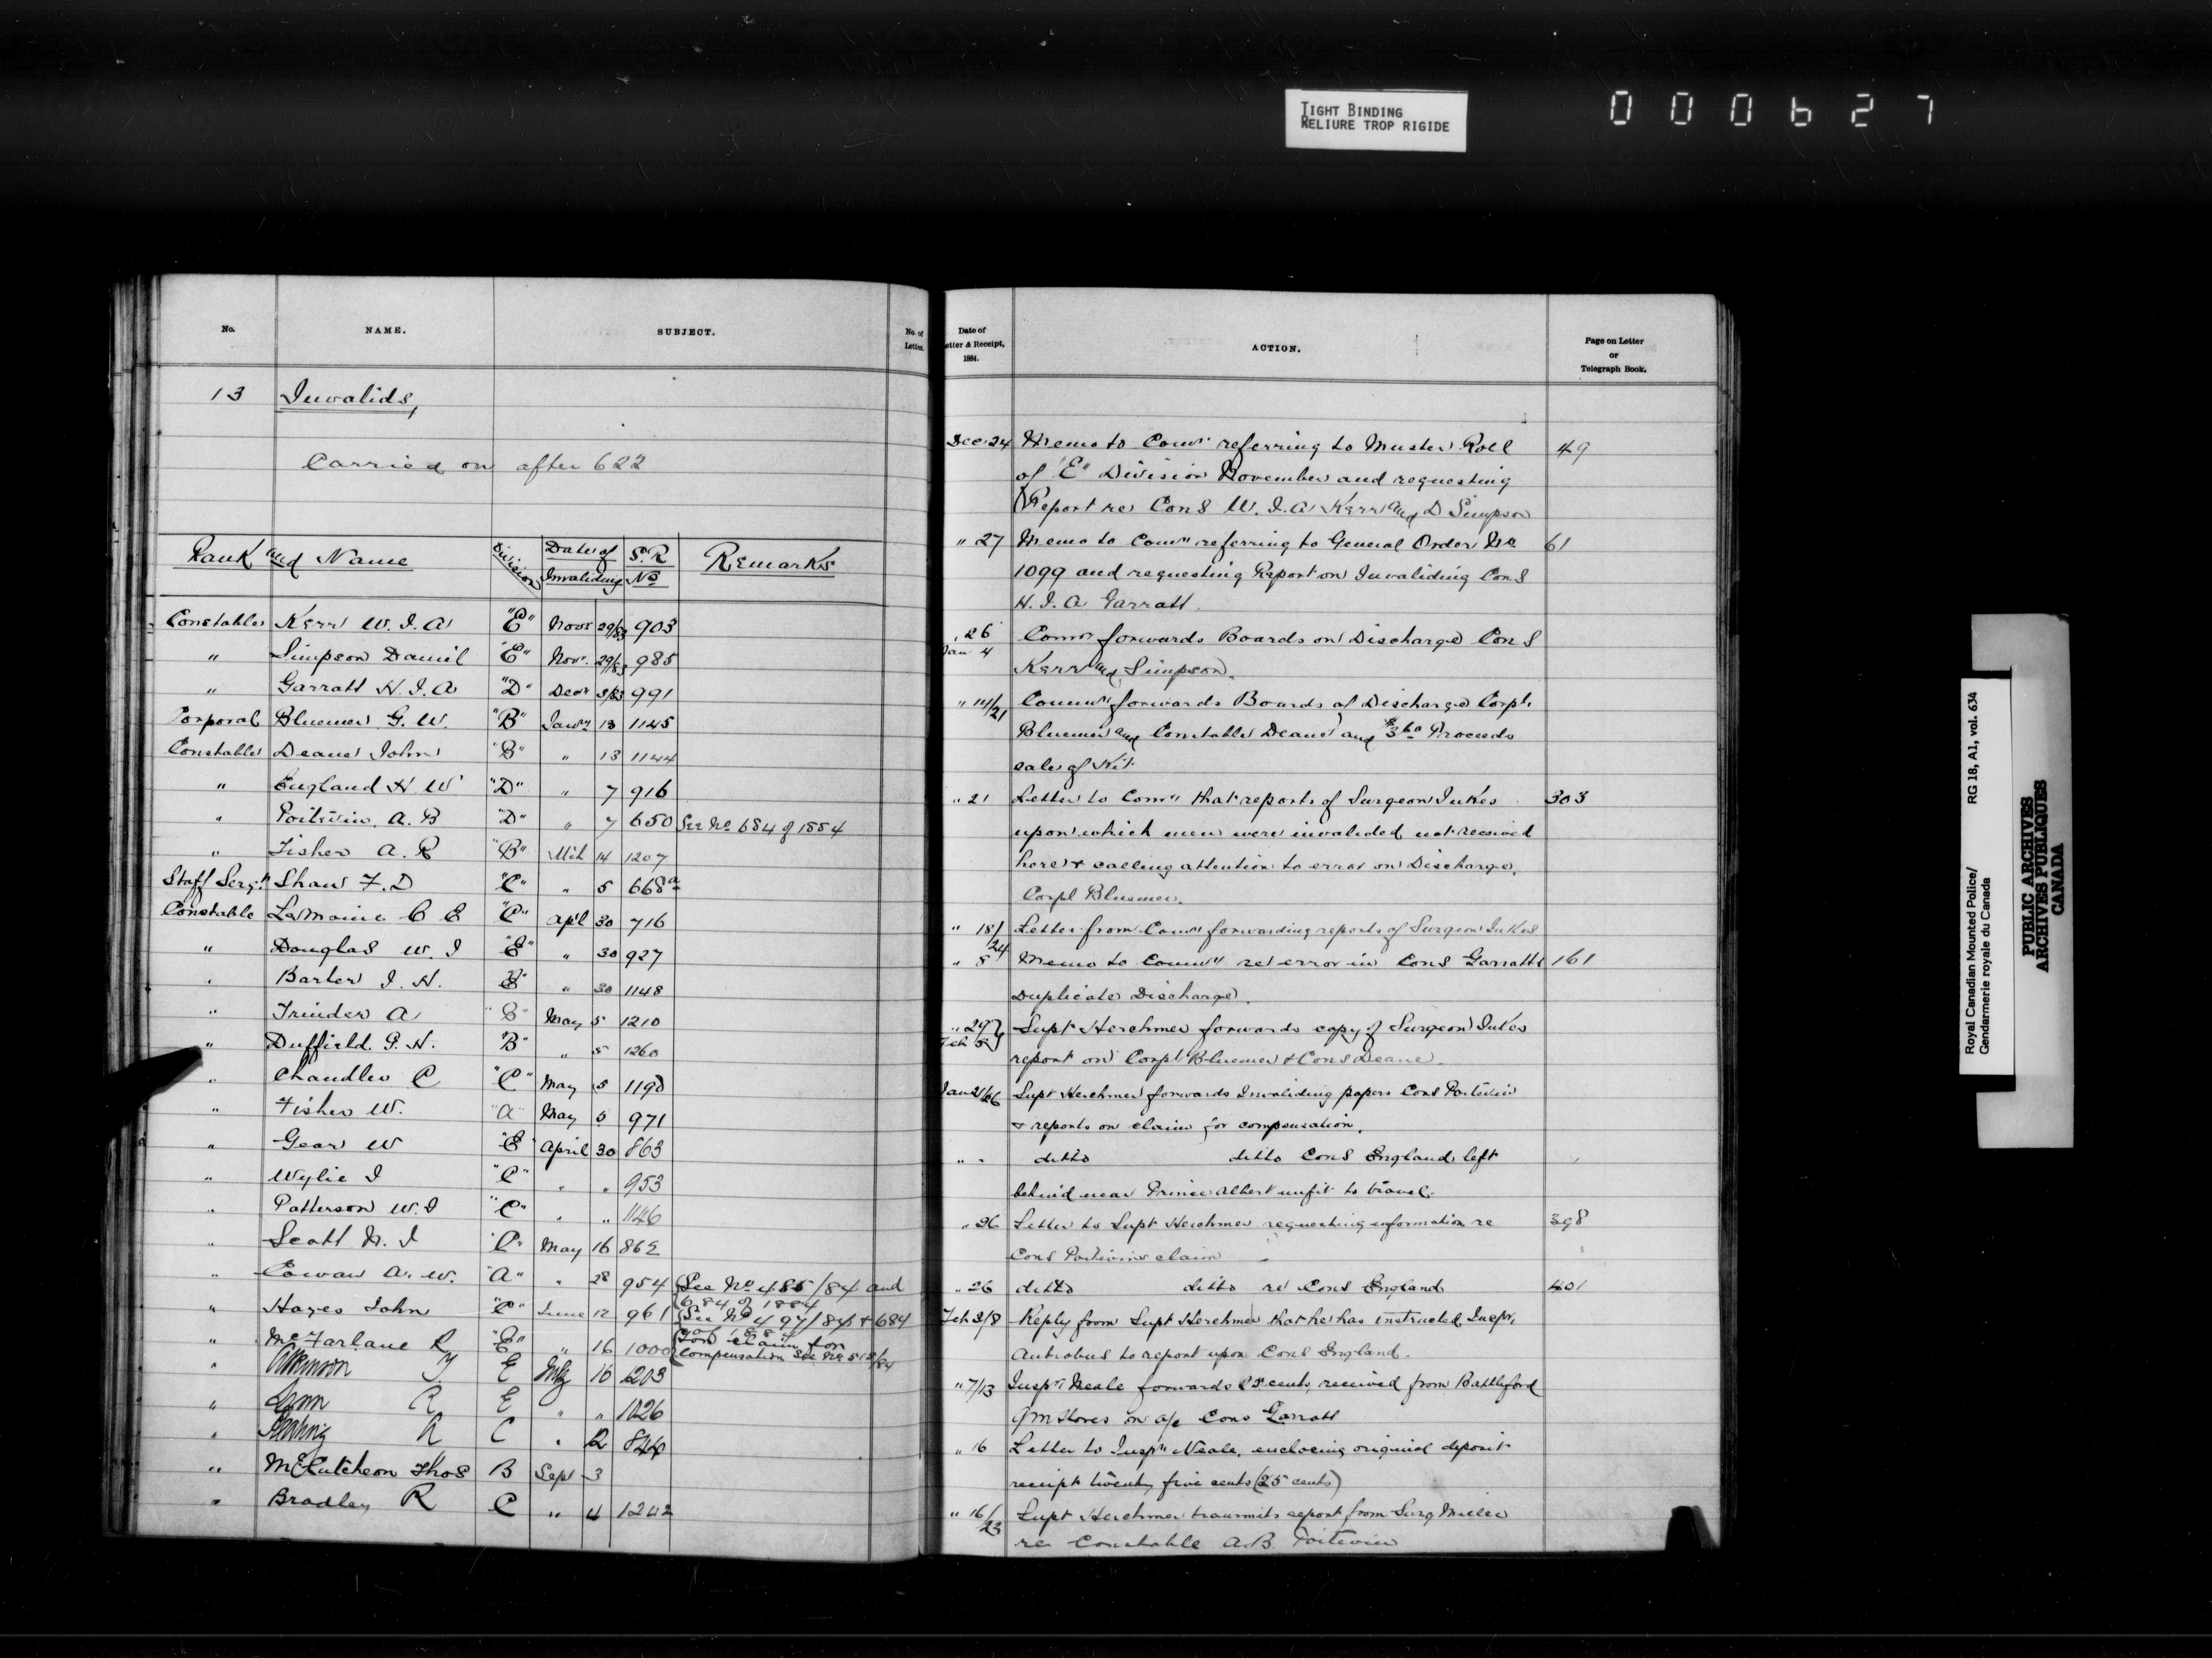 TIGHT BINDING
RELIURE TROP RIGIDE
000627
No. NAME. SUBJECT. No. of Letter.
13 Invalids,
Carried on after 622
Rank and Name Division Date of Invaliding S.R No Remarks
Constable Kerr W. J. A "E" Novr 29/83 903
" Simpson Daniel "E" Novr. 29/83 985
" Garratt H. J. A "D" Decr 3/83 991
Corporal Bluemer G. W. "B" Jany 13 1145
Constable Deane John "B" " 13 1144
" England H W "D" " 7 916
" Poitevin. A. B "D" " 7 650 See No 684 of 1884
" Fisher A. R "B" Mch 14 1207
Staff Sergt Shaw F. D "C" " 5 668a
Constable LeMoine C E "C" Apl 30 716
" Douglas W. J "E" " 30 927
" Barber J. H. "E" " 30 1148
" Trinder A " " May 5 1210
" Duffield. G. H. "B" " 5 1260
" Chandler C "C" May 5 1190
" Fisher W. "A" May 5 971
" Gear W "E" April 30 863
" Wylie J "C" " " 953
" Patterson W. J "C" " " 1146
" Scott N. J "C" May 16 862
" Cowan A. W. "A" " 28 954 See No 485/84 and
684 of 1884
" Hayes John "C" June 12 961 See No 497/84 + 684
of 1884
" McFarlane R "E" " 16 1000 For claim for
compensation see No 512/84
" Atkinson T. E July 16 1203
" Lynn R E " " 1026
" R C " 12 846
" McCutcheon Thos B Sept 3
" Bradley R C " 4 1242
Date of Letter & Receipt, 1884. ACTION. Page on Letter or Telegraph Book.
Dec 24 Memo to Comr referring to Muster Roll 49
of "E" Division November and requesting
Report re Cons W. J. A. Kerr and D Simpson
" 27 Memo to Comr referring to General Order No 61
1099 and requesting Report on Invaliding Cons
H. J. A Garratt.
" 26 Comr forwards Boards on Discharge Cons
Jan 4 Kerr and Simpson.
" 14/21 Commr forwards Boards of Discharge Corpl.
Bluemer and Constable Deane and Proceeds
sale of Kit
" 21 Letter to Comr that reports of Surgeon Jukes 303
upon which men were invalided not received
here & calling attention to error on Discharge.
Corpl Bluemer.
" 18/24 Letter from Comr forwarding reports of Surgeon Jukes
" 8 Memo to Commr re error in Cons Garratts 161
Duplicate Discharge.
" 29 Supt Herchmer forwards copy of Surgeon Jukes
Feb 5 report on Corpl Bluemer & Cons Deane.
Jan 21/26 Supt Herchmer forwards Invaliding papers Cons Poitevin
& reports on claim for compensation.
" " ditto ditto Cons England left
behind near Prince Albert unfit to travel.
" 26 Letter to Supt Herchmer requesting information re 398
Cons Poitevins claim
" 26 ditto ditto re Cons England 401
Feb 2/8 Reply from Supt Herchmer that he has instructed Inspr.
Antrobus to report upon Cons England.
" 7/13 Inspr Neale forwards 25 cents, received from Battleford
QM Stores on a/c Cons Garratt
" 16 Letter to Inspr Neale, enclosing original deposit
receipt twenty five cents (25 cents)
" 16/23 Supt Herchmer transmits report from Surg Miller
re Constable A. B Poitevin
Royal Canadian Mounted Police/ RG 18, A1, vol. 634
Gendarmerie royale du Canada
PUBLIC ARCHIVES
ARCHIVES PUBLIQUES
CANADA